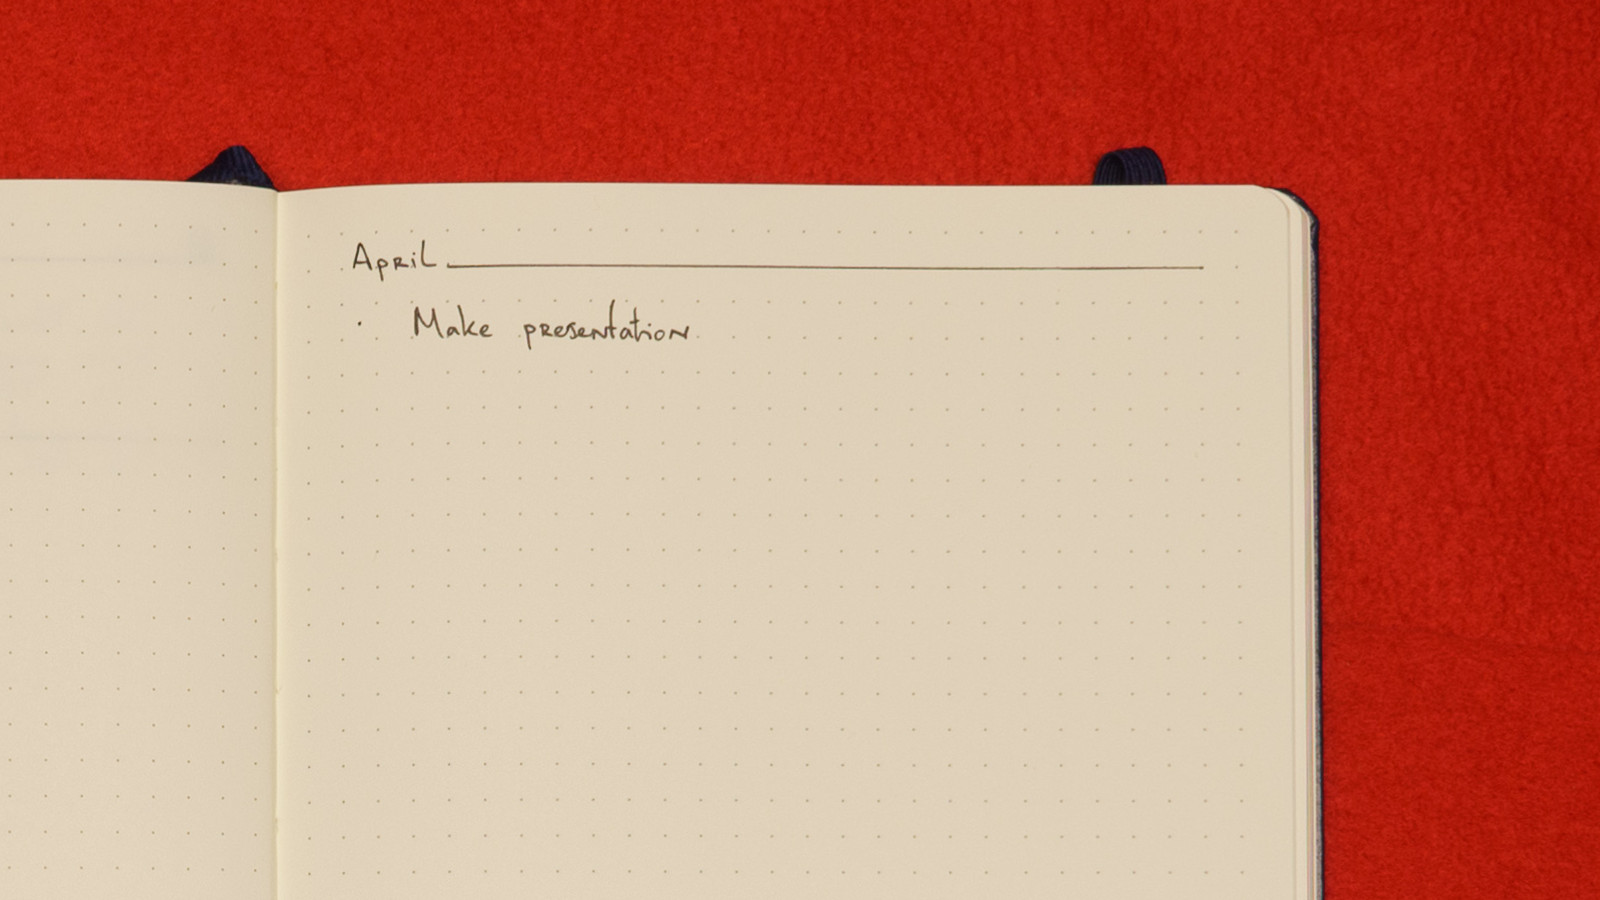 April
· Make presentation